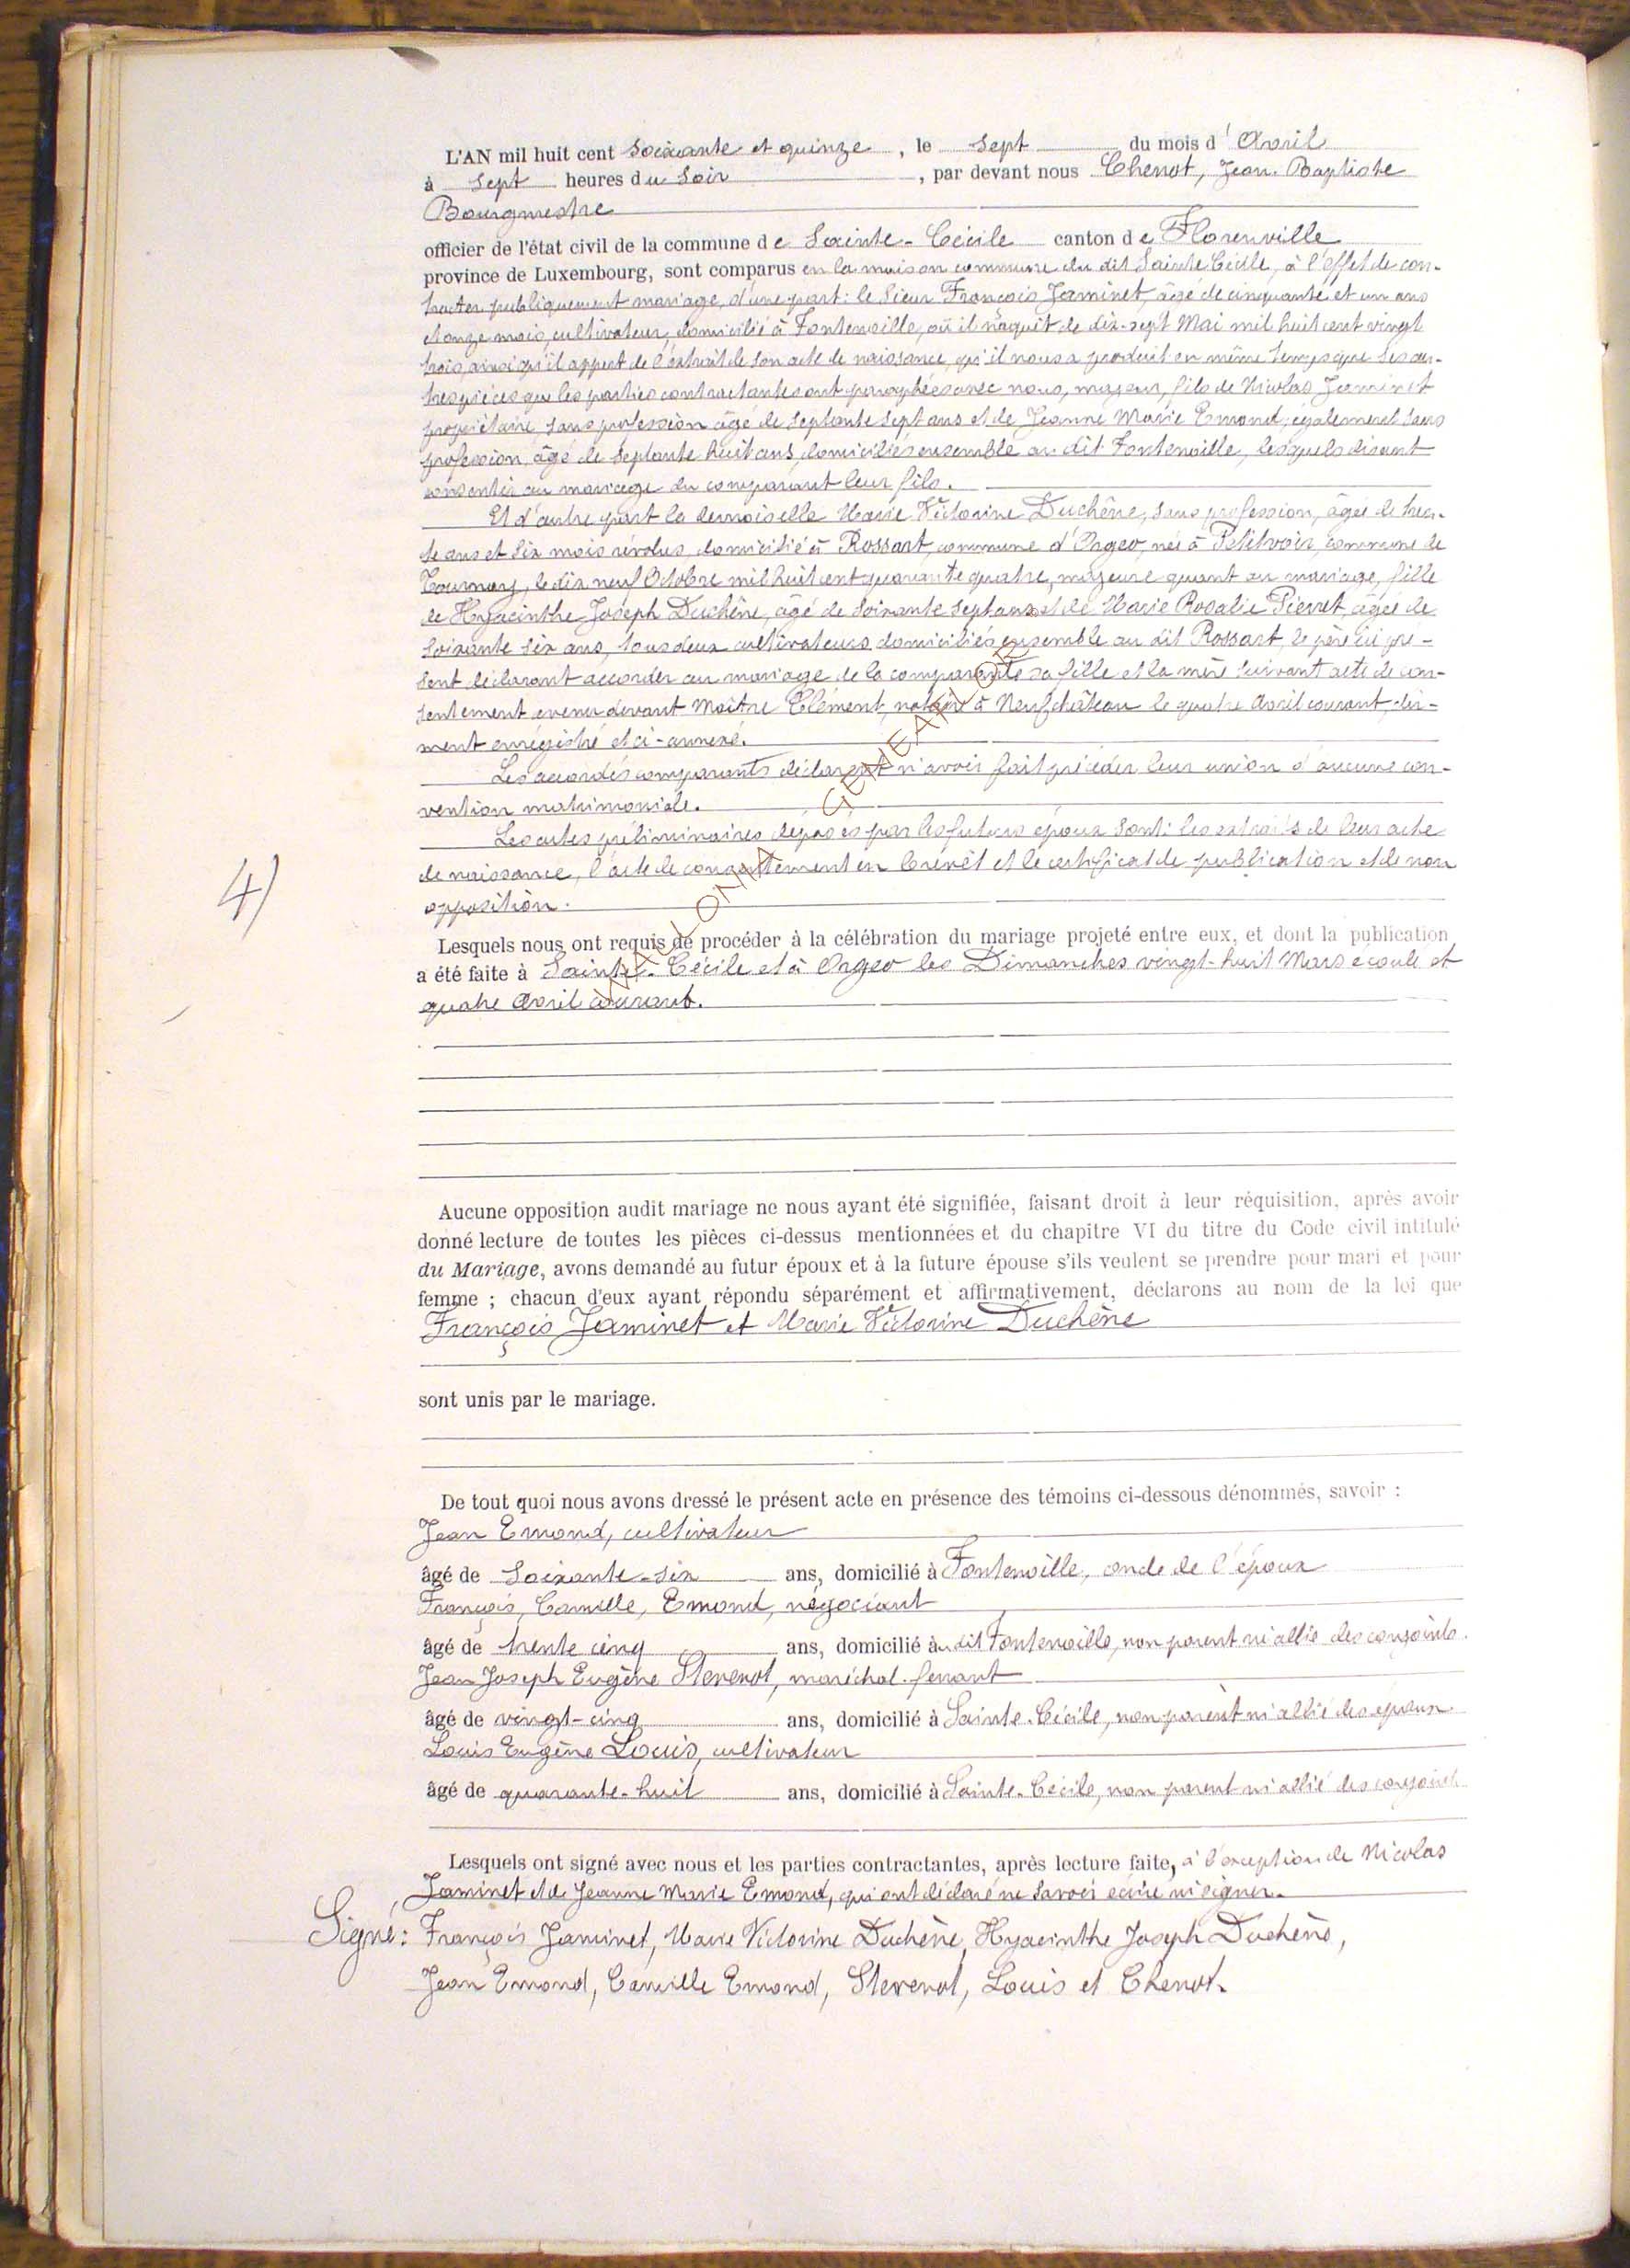 L'AN mil huit cent soixante et quinze, le sept du mois d'Avril
à sept heures du soir, par devant nous Chenot, Jean Baptiste
Bourgmestre
officier de l'état civil de la commune de Sainte-Cécile canton de Florenville
province de Luxembourg, sont comparus en la maison commune du dit Sainte Cécile, à l'effet de con-
tracter publiquement mariage, d'une part: le Sieur François Jaminet, âgé de cinquante et un ans
et onze mois, cultivateur, domicilié à Fontenoille, où il naquit de dix-sept Mai mil huit cent vingt
trois, ainsi qu'il appert de l'extrait de son acte de naissance, qu'il nous a produit en même temps que les au-
tres pièces que les parties contractantes ont paraphées avec nous, majeur, fils de Nicolas Jaminet
propriétaire, sans profession âgé de septante sept ans et de Jeanne Marie Emond, également sans
profession, âgé de septante huit ans, domiciliés ensemble au dit Fontenoille, lesquels disent
consentir au mariage du comparant leur fils.
Et d'autre part la demoiselle Marie Victorine Duchêne, sans profession, âgée de tren-
te ans et six mois révolus, domicilié à Rossart, commune d'Orgeo, née à Petitvoir, commune de
Tournay, le dix neuf Octobre mil huit cent quarante quatre, majeure quant au mariage, fille
de Hyacinthe Joseph Duchêne, âgé de soixante sept ans et de Marie Rosalie Pierret, âgée de
soixante six ans, tous deux cultivateurs domiciliés ensemble au dit Rossart, le père ici pré-
sent déclarant accorder au mariage de la comparante sa fille et la mère suivant acte de con-
sentement avenu devant Maître Clément, notaire à Neufchâteau le quatre Avril courant, dû-
ment enrégistré et ci-annexé.
Les accordés comparants déclarent n'avoir fait précéder leur union d'aucune con-
vention matrimoniale.
Les actes préliminaires déposés par les futurs époux sont: les extraits de leur acte
de naissance, l'acte de consentement en brevêt et le certificat de publication et de non
opposition.
4)
Lesquels nous ont requis de procéder à la célébration du mariage projeté entre eux, et dont la publication
a été faite à Sainte-Cécile et à Orgeo les Dimanches vingt-huit Mars écoulé et
quatre Avril courant.
Aucune opposition audit mariage ne nous ayant été signifiée, faisant droit à leur réquisition, après avoir
donné lecture de toutes les pièces ci-dessus mentionnées et du chapitre VI du titre du Code civil intitulé
du Mariage, avons demandé au futur époux et à la future épouse s'ils veulent se prendre pour mari et pour
femme ; chacun d'eux ayant répondu séparément et affirmativement, déclarons au nom de la loi que
François Jaminet et Marie Victorine Duchêne
sont unis par le mariage.
De tout quoi nous avons dressé le présent acte en présence des témoins ci-dessous dénommés, savoir :
Jean Emond, cultivateur
âgé de soixante-six ans, domicilié à Fontenoille, oncle de l'époux
François, Camille, Emond, négociant
âgé de trente cinq ans, domicilié au dit Fontenoille, non parent ni allié des conjoints.
Jean Joseph Eugène Stevenot, maréchal-ferrant
âgé de vingt-cinq ans, domicilié à Sainte-Cécile, non parent ni allié des époux
Louis Eugène Louis, cultivateur
âgé de quarante-huit ans, domicilié à Sainte-Cécile, non parent ni allié des conjoints
Lesquels ont signé avec nous et les parties contractantes, après lecture faite, à l'exception de Nicolas
Jaminet et de Jeanne Marie Emond, qui ont déclaré ne savoir écrire ni signer.
Signé: François Jaminet, Marie Victorine Duchêne, Hyacinthe Joseph Duchêne,
Jean Emond, Camille Emond, Stevenot, Louis et Chenot.